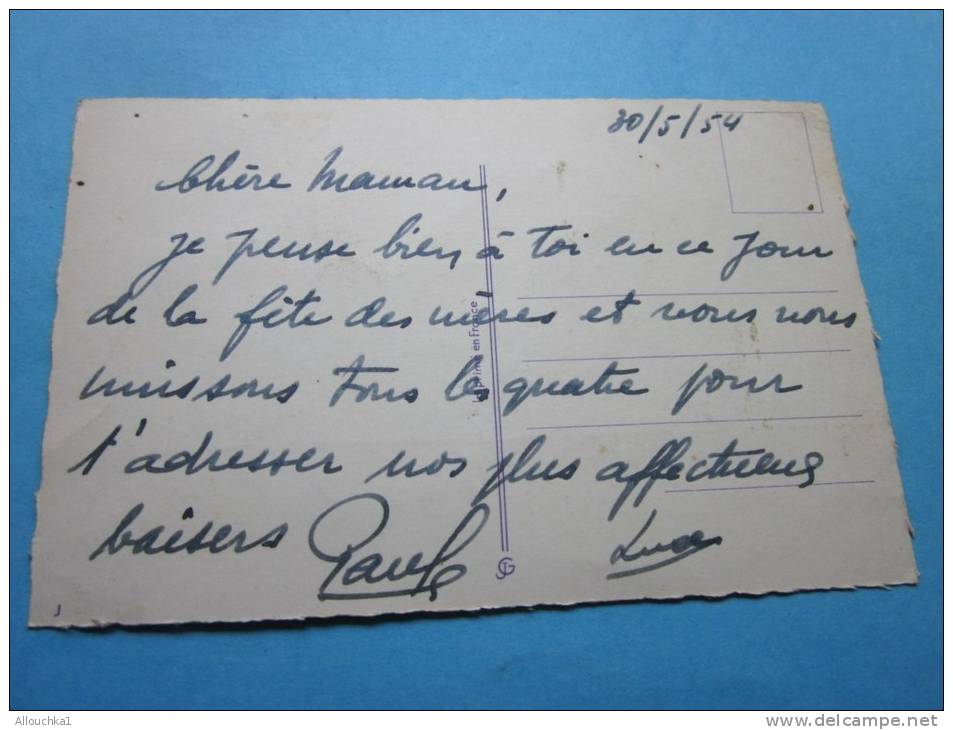 30/5/54
Chère Maman,
je pense bien à toi en ce jour
de la fête des mères et nous nous
unissons tous les quatre pour
t'adresser nos plus affectueux
baisers Paul
Imprimé en France
J
Allouchka1
www.delcampe.net